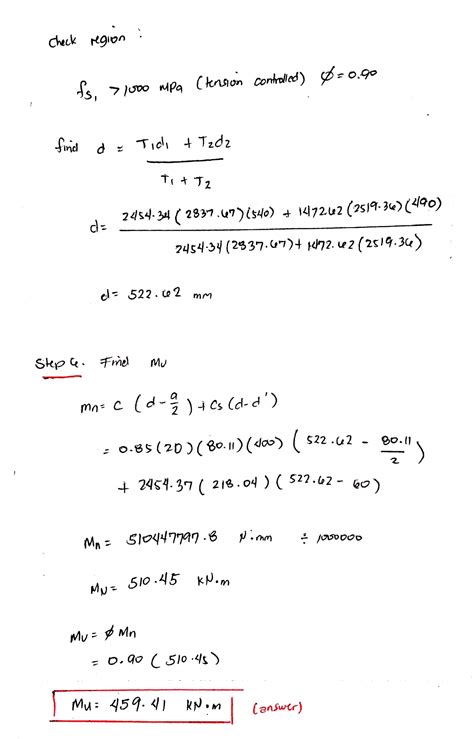 Check region :
fs₁ > 1000 MPa (tension controlled) φ = 0.90
find d = T₁d₁ + T₂d₂ / T₁ + T₂
d = 2454.34 (2837.67)(540) + 1472.62 (2519.36)(490) / 2454.34 (2837.67) + 1472.62 (2519.36)
d = 522.62 mm
Step 6. Find Mu
mn = C (d - a/2) + Cs (d-d')
= 0.85 (20) (80.11) (400) (522.62 - 80.11/2)
+ 2454.37 (218.04) (522.62 - 60)
Mn = 510447797.8 N.mm ÷ 1000000
MN = 510.45 kN.m
Mu = φ Mn
= 0.90 (510.45)
Mu = 459.41 kN.m (answer)